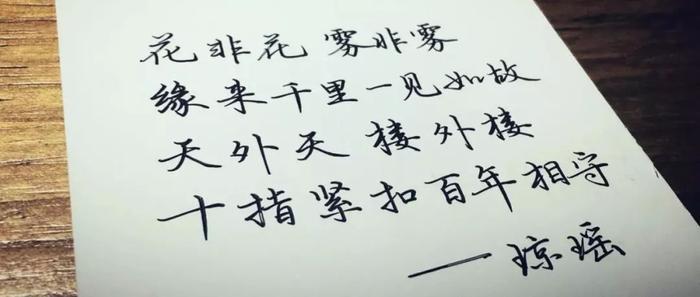 花非花 雾非雾
缘来千里一见如故
天外天 楼外楼
十指紧扣百年相守
——琼瑶